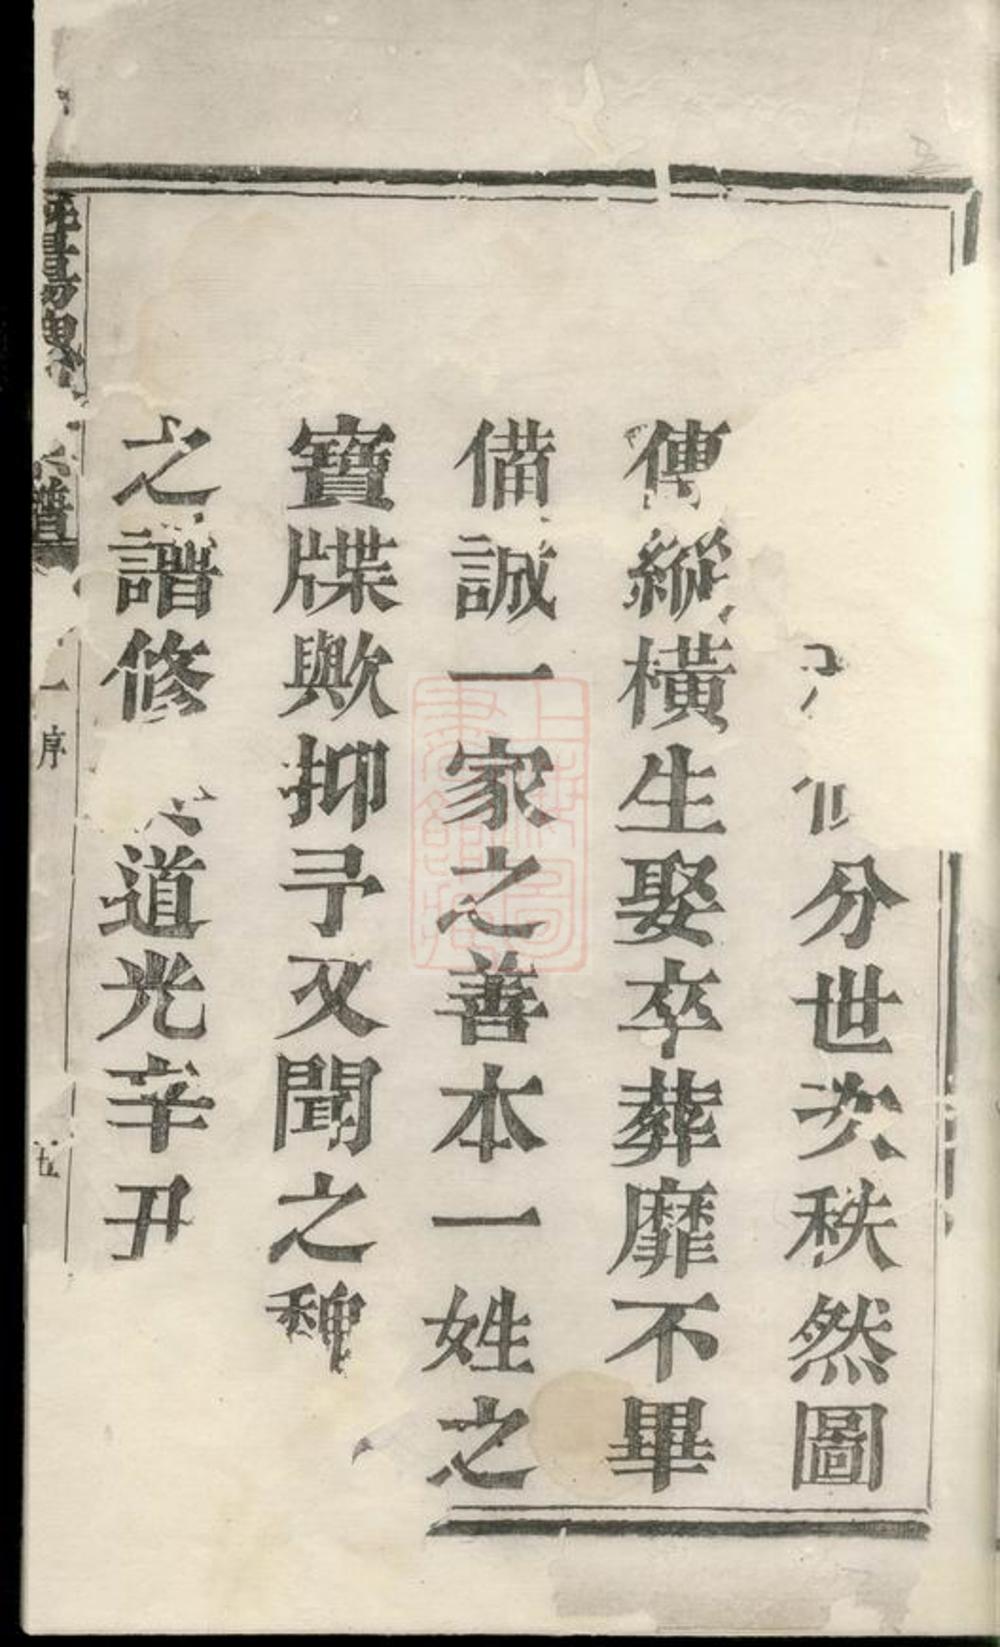 分世次秩然圖
傳縱橫生娶卒葬靡不畢
備誠一家之善本一姓之
寶牒歟抑予又聞之魏
之譜修　　道光辛丑
譜
一
序
五
上海圖書館藏